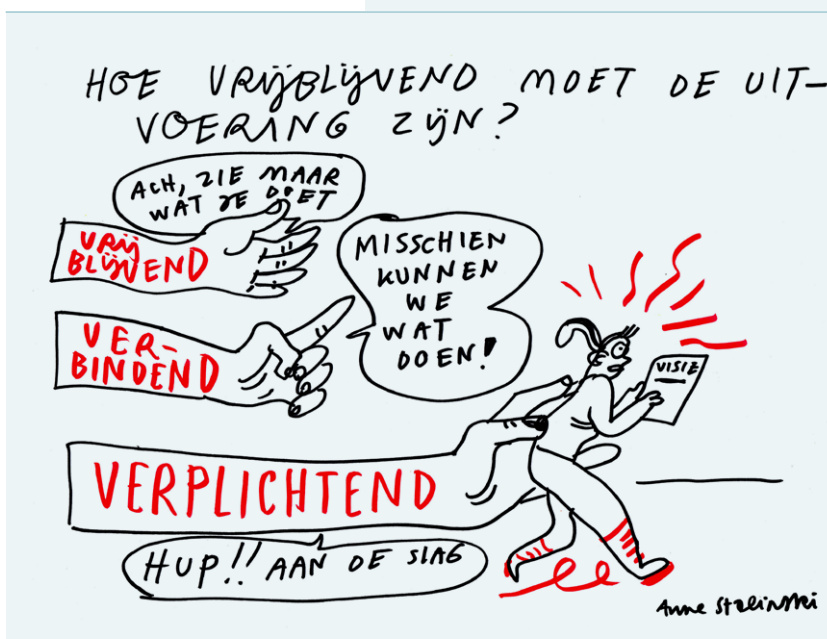 HOE VRIJBLIJVEND MOET DE UIT-
VOERING ZIJN?
ACH, ZIE MAAR
WAT JE DOET
VRIJ
BLIJVEND
MISSCHIEN
KUNNEN
WE
WAT
DOEN!
VER-
BINDEND
VISIE
VERPLICHTEND
HUP!! AAN DE SLAG
Anne Stalinski